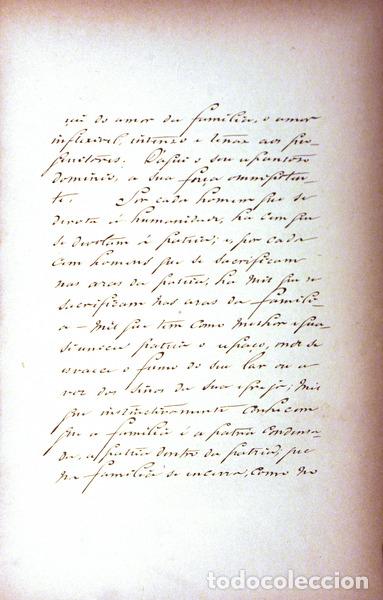 qui do amor da familia, o amor
inflexivel, intenso e tenaz aos pro-
genitores. D'aqui o seu espantoso
dominio, a sua força omnipoten-
te. Por cada homem que se
devota á humanidade, ha cem que
se devotam á patria; e, por cada
cem homens que se sacrificam
nas aras da patria, ha mil que se
sacrificam nas aras da famili-
a — mil que tem como melhor e
unica patria o espaço, onde se
esvaece o fumo do seu lar ou a
voz dos sinos da sua egreja; mil
que instinctivamente conhecem
que a familia é a patria condensa-
da, a patria dentro da patria; que
na familia se encerra, como no
todocoleccion